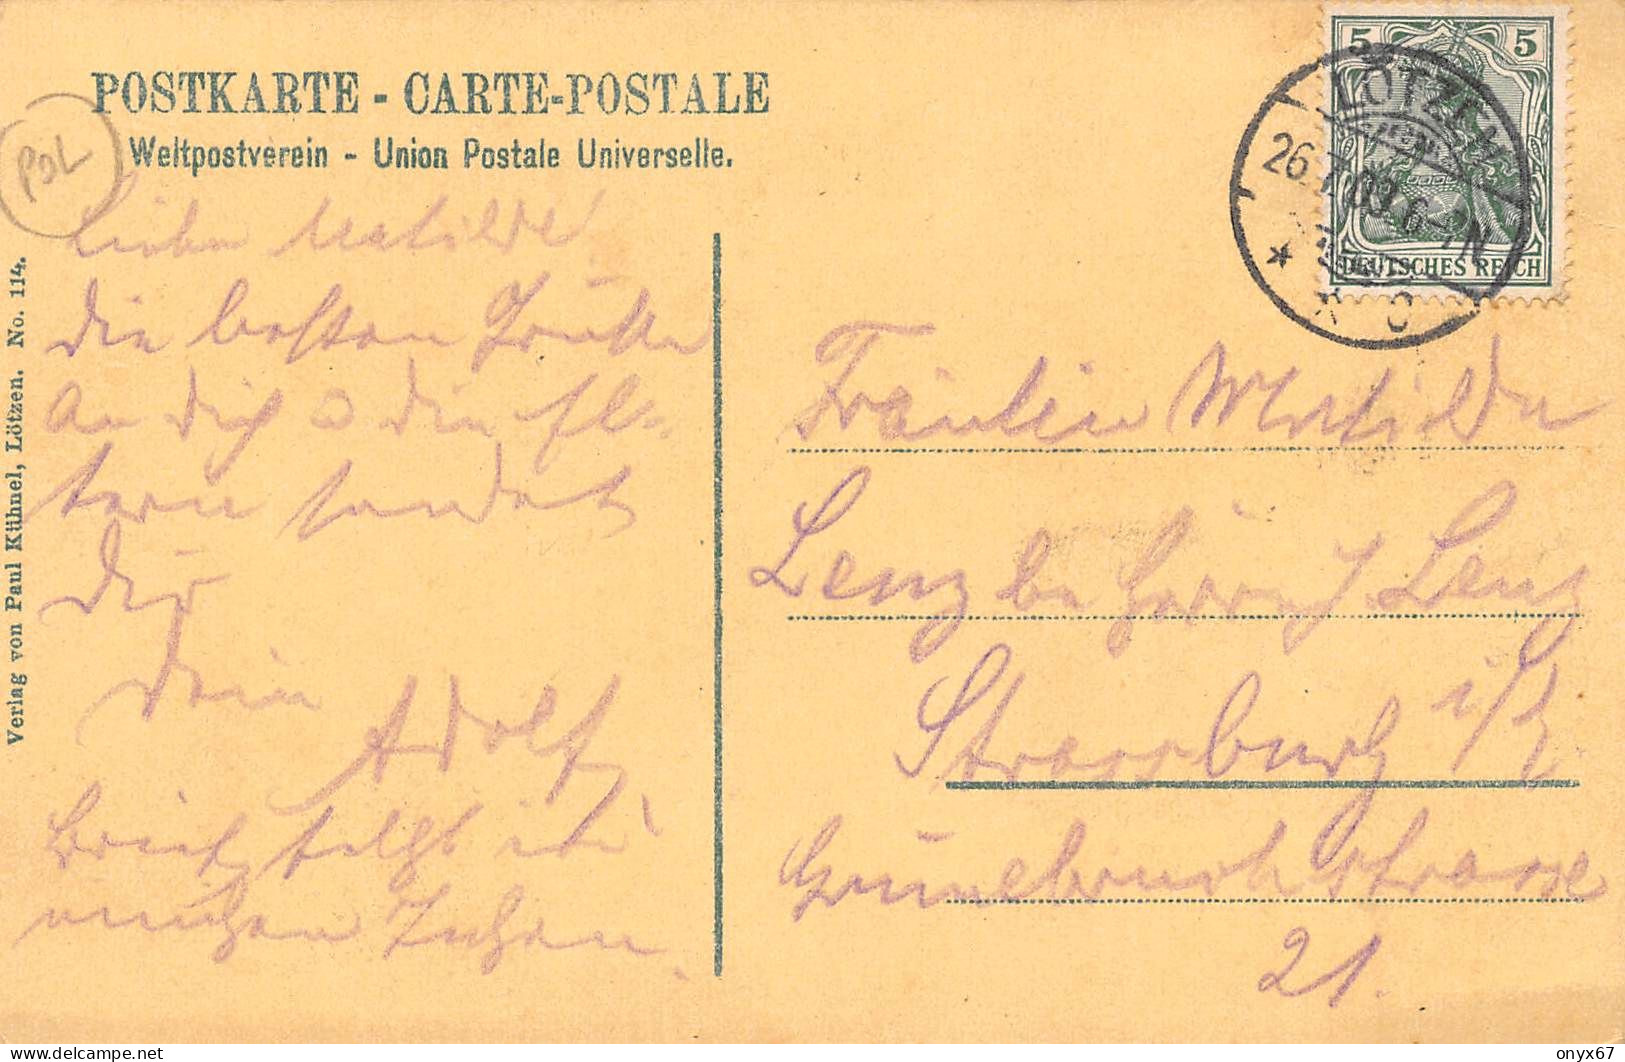 POSTKARTE - CARTE-POSTALE
Weltpostverein - Union Postale Universelle.
POL
Verlag von Paul Kühnel, Lötzen. No. 114.
5 5
DEUTSCHES REICH
LÖTZEN
26.7.09.6-7N
* * c
Liebe Matilde!
die besten Grüße
an dich u die El-
tern sendet
dir
dein
Adolf
Brief folgt in
einigen Tagen.
Fräulein Matilde
Lenz bei Herrn J. Lenz
Strassburg i/
Grünebruchstrasse
21.
delcampe.net
onyx67